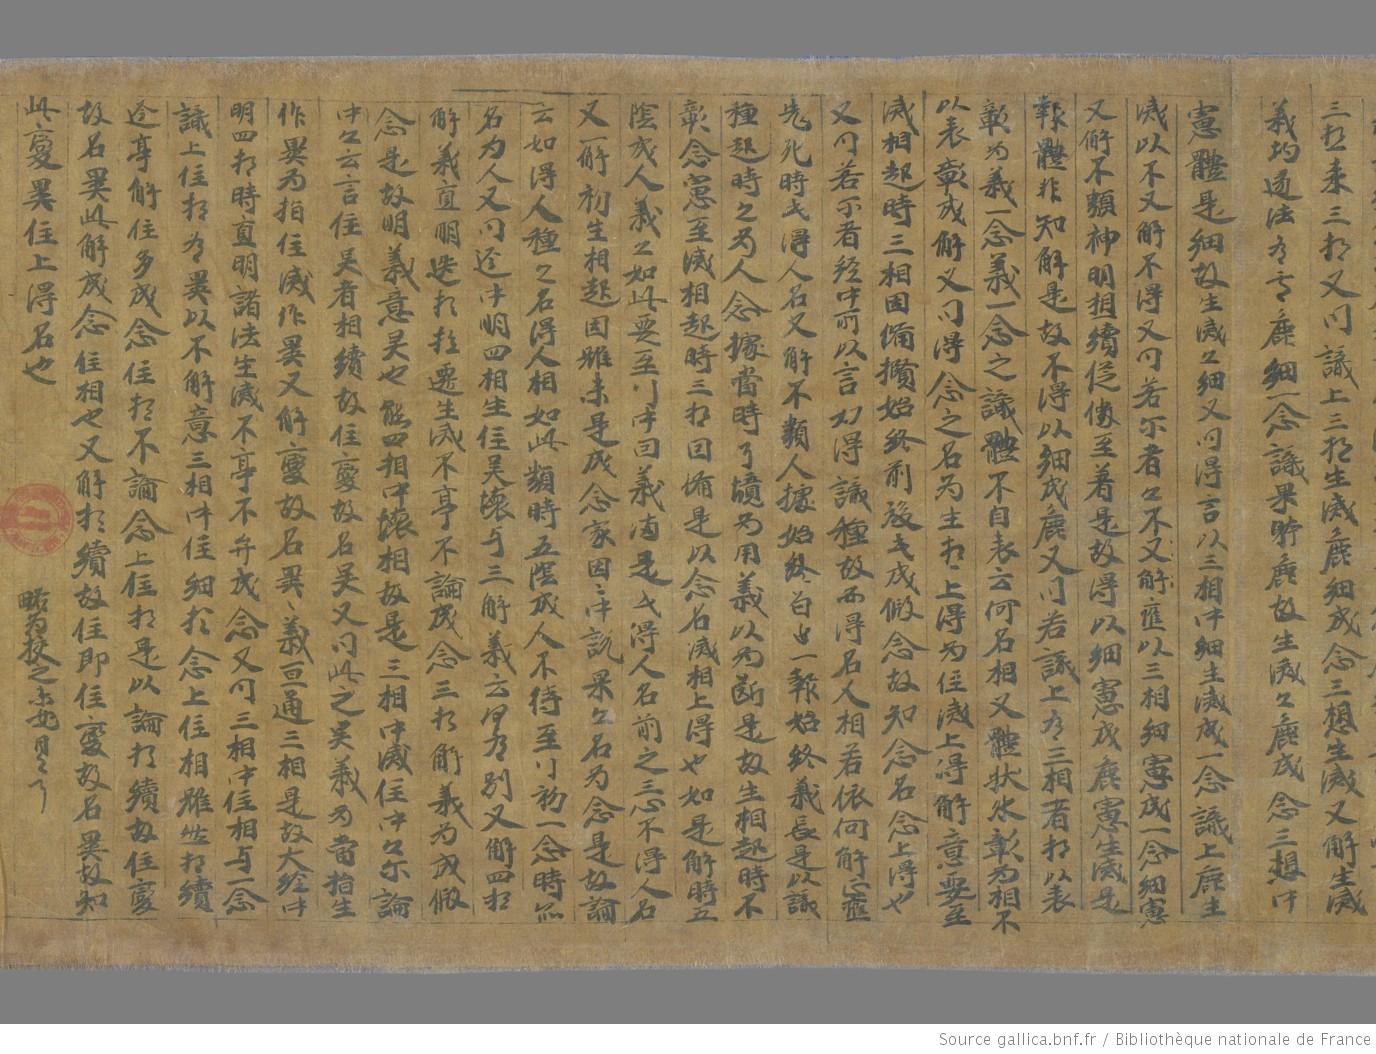 三相來三相又問識上三相生滅麁細成念三想生滅又解生滅
義均通法有言麁細一念識果時麁故生滅々麁成念三想中
憲體是細故生滅々細又問得言以三相中細生滅成一念識上麁生
滅以不又解不得又問若尒者々不又解應以三相細憲成一念細憲
又解不類神明相續從微至著是故得以細憲成麁憲生滅是
報體非知解是故不得以細成麁又問若識上有三相者相以表
彰為義一念義一念之識體不自表云何名相又體狀以彰為相不
以表彰成解又問得念之名為生相上得為住滅上得解意要至
滅相起時三相因備攬始終前後方成假念故知念名念上得也
又問若尒者經中所以言初得識種故而得名人相若依何解應
先死時方得人名又解不類人據始終白也一報始終義長是以識
種起時々為人念據當時了境為用義以為斷是故生相起時不
彰念憲至滅相起時三相因備是以念名滅相上得也如是解時五
陰成人義々如此要至川中曰義滴是方得人名前之三心不得人名
又一解初生相起因雖未是成念家因々中說果々名為念是故論
云如得人種之名得人相如此類時五陰成人不待至川初一念時
名為人又問迳中明四相生住異壞与三解義云何有別又解四相
解義直明迭相推遷生滅不亭不論成念三相解義為成假
念是故明義意異也然四相中壞相故是三相中滅住中々尒論
中々云言住异者相續故住變故名异又問此之异義為當指生
作異為指住滅作異又解變故名異々義亘通三相是故大經中
明四相時直明諸法生滅不亭不弁成念又問三相中住相与一念
識上住相有異以不解意三相中住細相念上住相雖此相續
迳亭解住多成念住相不論念上住相是以論相續故住變
故名異此解成念住相也又解相續故住即住變故名異故知
此變異住上得名也
略為校之